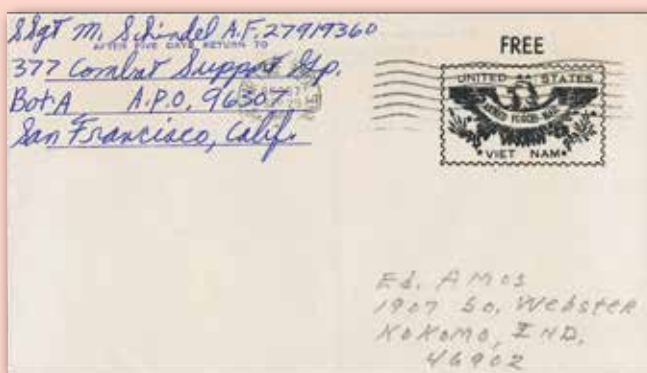 SSgt M. Schindel A.F. 27919360
AFTER FIVE DAYS RETURN TO
377 Combat Support Gp.
Box A A.P.O. 96307
San Francisco, Calif.
FREE
UNITED STATES
ARMED FORCES MAIL
VIET NAM
Ed. Amos
1907 So. Webster
KOKOMO, IND,
46902